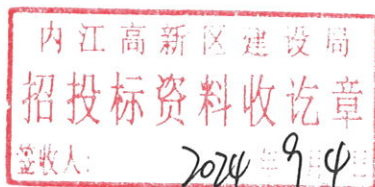 内江高新区建设局
招投标资料收讫章
签收人: 2024年9月4日